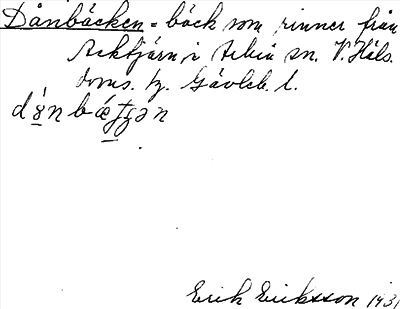 Dånbäcken = bäck som rinner från
Acktjärn i Arbrå sn. V. Häls.
doms. tg. Gävleb. l.
dánbæ̂tʒən
Erik Eriksson 1931